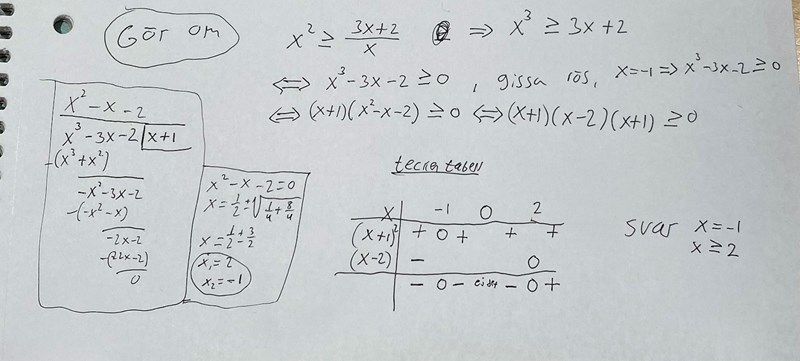 Gör om
x² ≥ (3x+2)/x ⇒ x³ ≥ 3x+2
⇔ x³-3x-2 ≥ 0, gissa rös, x=-1 ⇒ x³-3x-2 ≥ 0
⇔ (x+1)(x²-x-2) ≥ 0 ⇔ (x+1)(x-2)(x+1) ≥ 0
x²-x-2
x³-3x-2 | x+1
-(x³+x²)
-x²-3x-2
-(-x²-x)
-2x-2
0
x²-x-2=0
x=1/2±√(1/4+8/4)
x=1/2±3/2
x₁=2
x₂=-1
x -1 0 2
(x+1)² + 0 + + +
(x-2) - 0
- 0 - - 0 +
svar x=-1
x≥2